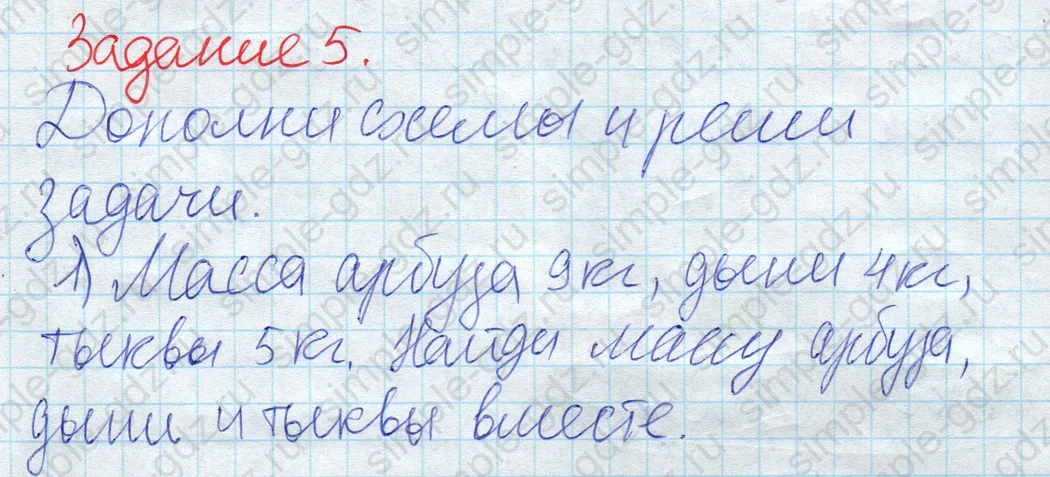 Задание 5.
Дополни схемы и реши
задачи.
1) Масса арбуза 9 кг, дыни 4 кг,
тыквы 5 кг. Найди массу арбуза,
дыни и тыквы вместе.
simple-gdz.ru